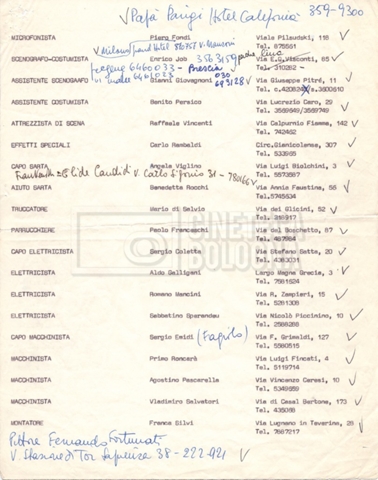 √Papà Parigi Hotel California 359-9300
MICROFONISTA Piero Fondi Viale Pilsudski, 118 √
Tel. 875551
√Milano Grand Hotel
SCENOGRAFO-COSTUMISTA Enrico Job Via E.G.Visconti, 85 √
Tel. 310282
6460033 - Brescia
6461023 030
ASSISTENTE SCENOGRAFO Gianni Giovagnoni 693128√ Via Giuseppe Pitré, 11 √
ASSISTENTE COSTUMISTA Benito Persico Via Lucrezio Caro, 29 √
Tel. 3569649/3589749
ATTREZZISTA DI SCENA Raffaele Vincenti Via Calpurnio Fiamma, 142 √
Tel. 742462
EFFETTI SPECIALI Carlo Rambaldi Circ.Gianicolense, 307 √
Tel. 533965
CAPO SARTA Angela Viglino Via Luigi Bialchini, 3 √
Tel. 5573587
AIUTO SARTA Benedetta Rocchi Via Annia Faustina, 55 √
Tel. 5745534
TRUCCATORE Mario di Salvio Via dei Glicini, 52 √
Tel. 218917
PARRUCCHIERE Paolo Franceschi Via del Boschetto, 87 √
Tel. 487664
CAPO ELETTRICISTA Sergio Coletta Via Stefano Satta, 20 √
Tel. 4383031
ELETTRICISTA Aldo Galligani Largo Magna Grecia, 3 √
Tel. 7581524
ELETTRICISTA Romano Mancini Via R. Zampieri, 15 √
Tel. 5281308
ELETTRICISTA Sebbatino Sparandeu Via Nicolò Piccinino, 10 √
Tel. 2588288
CAPO MACCHINISTA Sergio Emidi Via F. Grimaldi, 127 √
Tel. 5580515
MACCHINISTA Primo Roncarò Via Luigi Fincati, 4 √
Tel. 5119714
MACCHINISTA Agostino Pascarella Via Vincenzo Caresi, 10 √
Tel. 5349859
MACCHINISTA Vladimiro Salvatori Via di Casal Bertone, 173 √
Tel. 435088
MONTATORE Franca Silvi Via Lugnano in Teverina, 28 √
Tel. 7887217
Pittore Fernando Fortunati
V Stazione di Tor Sapienza 38 - 222.921 √
CINETECA
BOLOGNA